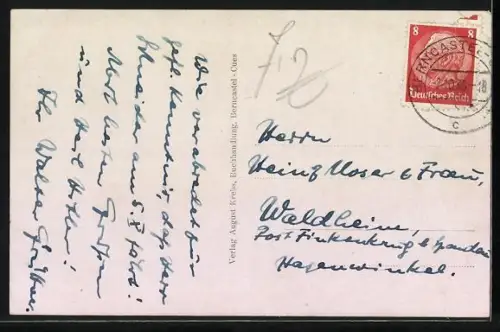 Wie verabredet zur
gefl. Kenntnis, daß Herr
Schneider am 5. X. fährt!
Mit besten Grüßen
und Heil Hitler!
Ihr Walter
Verlag August Krebs, Buchhandlung, Berncastel-Cues
8
8
Deutsches Reich
BERNCASTEL
c
Herrn
Heinz Moser & Frau,
Waldheim,
Post Finkenkrug b. Spandau
Hagenwinkel.